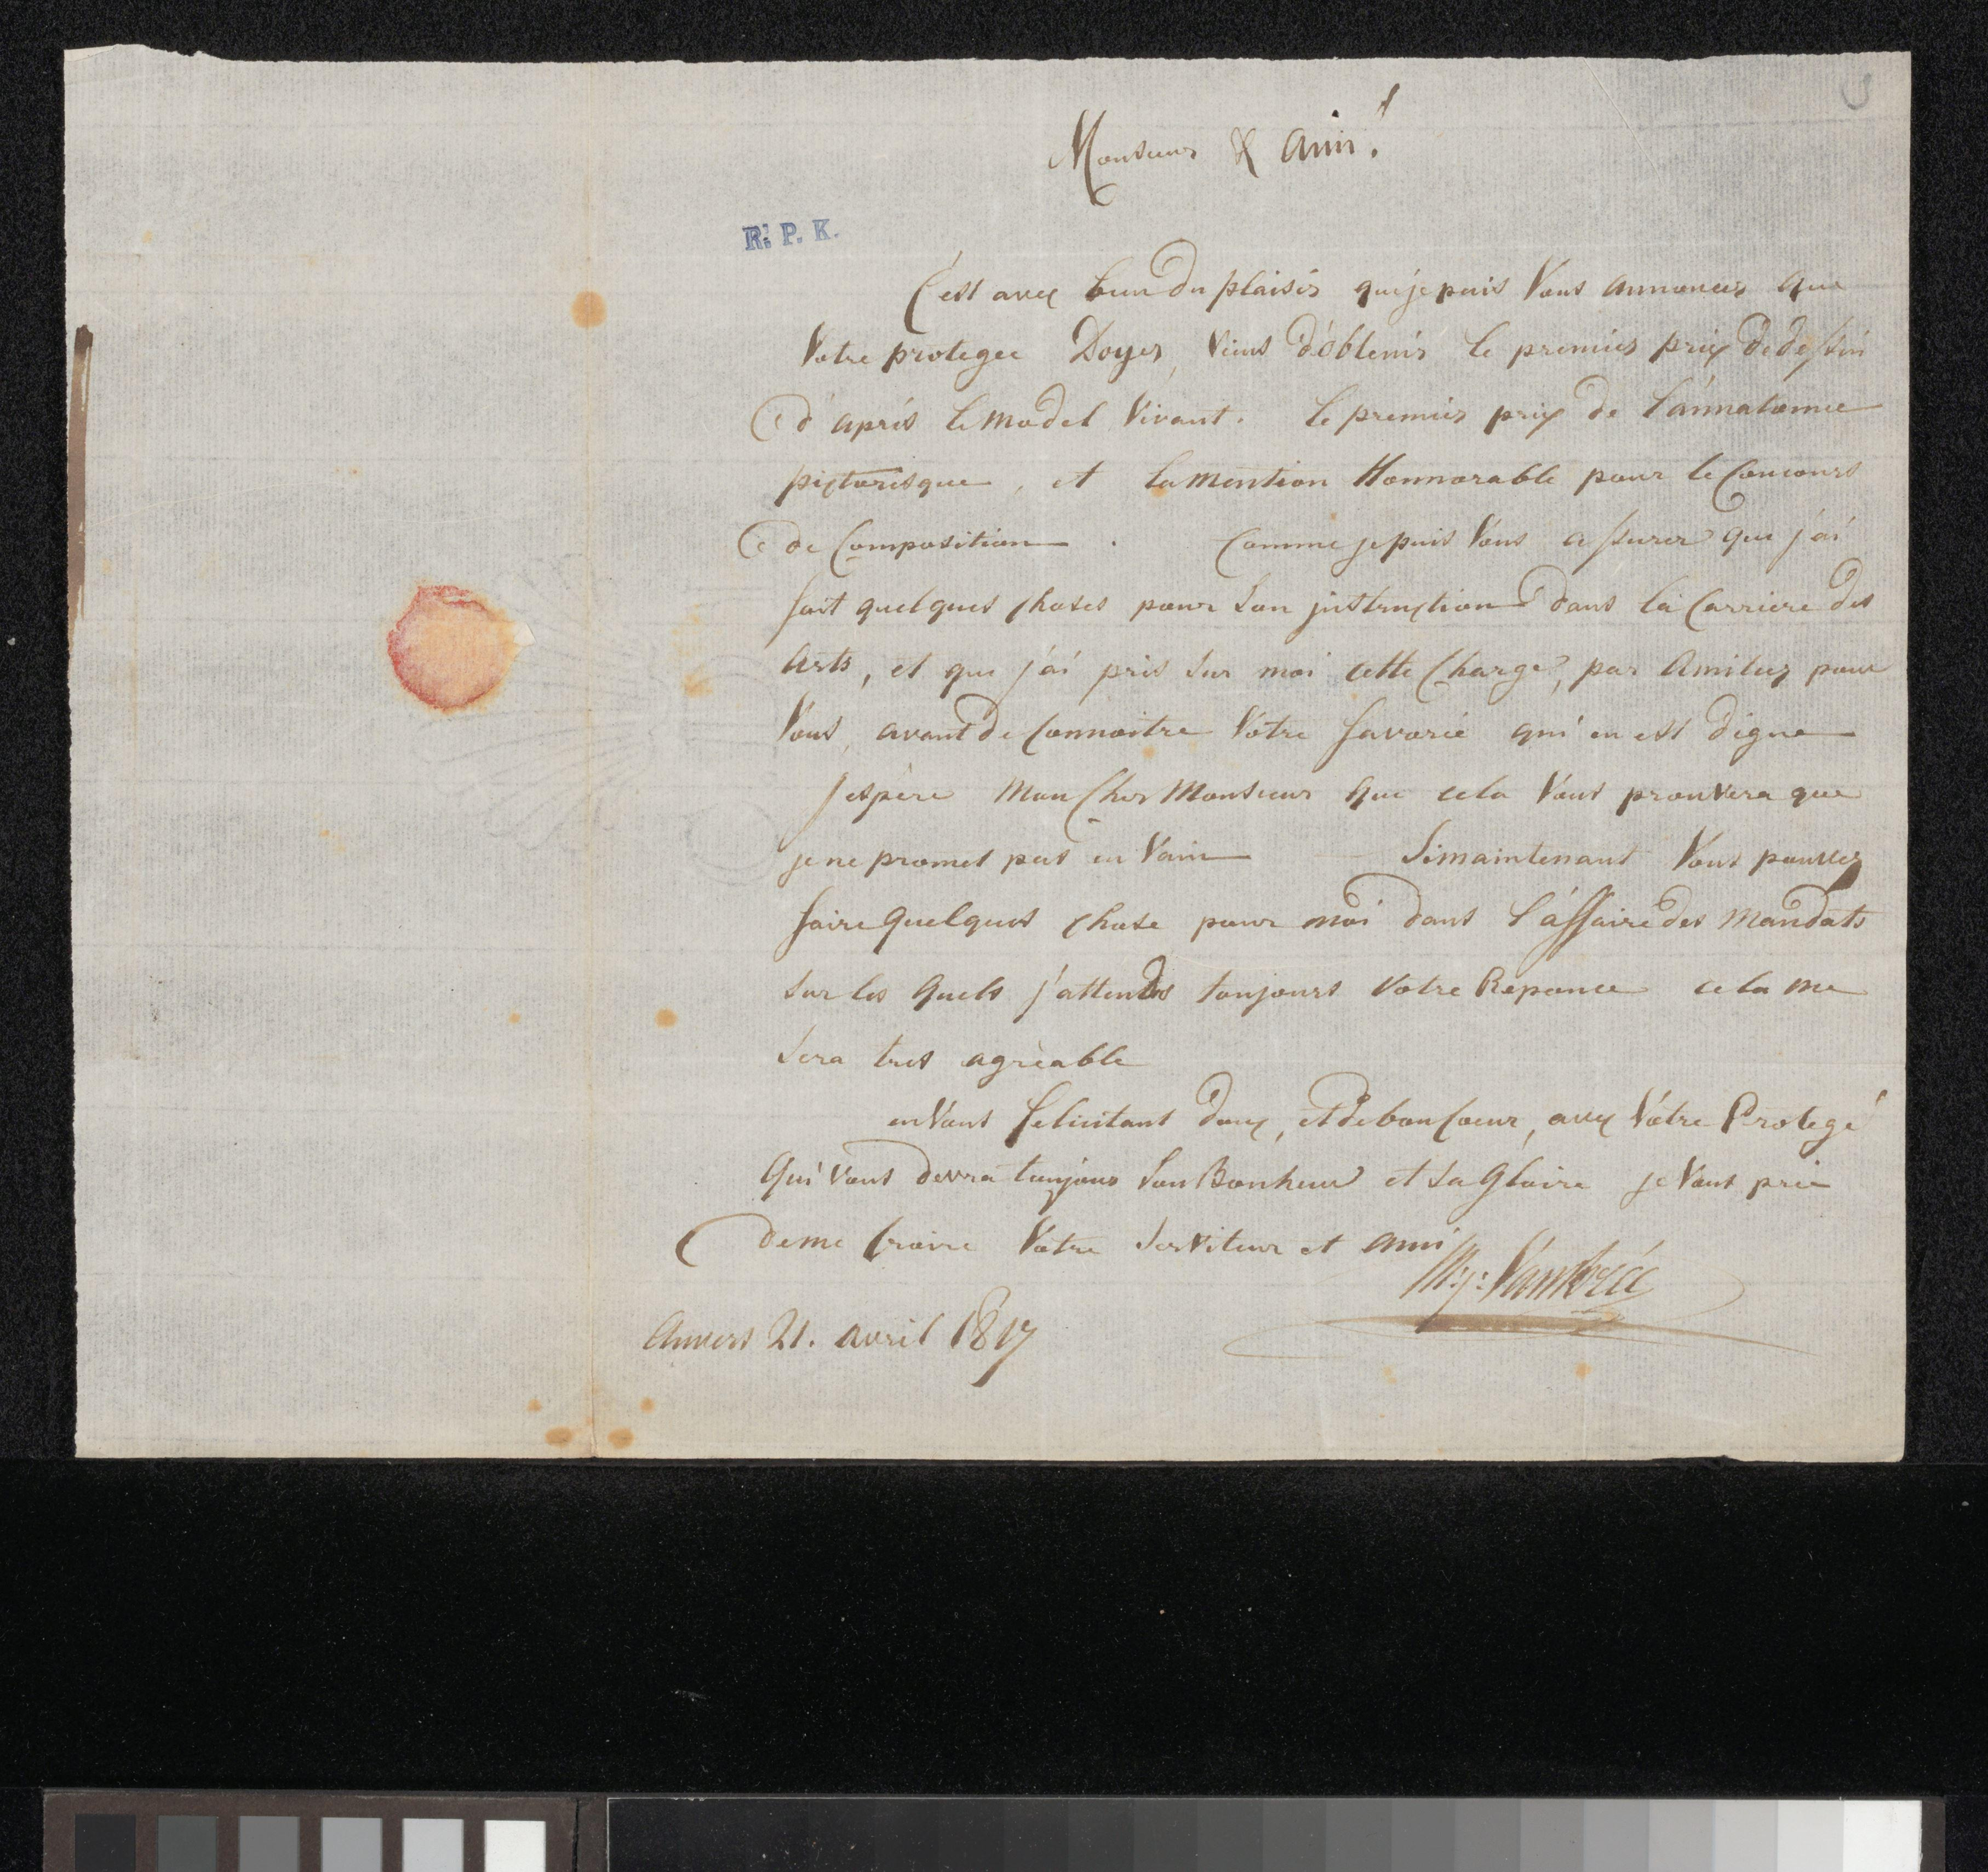 Monsieur & ami!
R! P. K.
C'est avec bien du plaisir que je puis Vous annoncer que
Votre protegée Doyer, Vient d'obtenir le premier prix de dessin
d'après le model Vivant. le premier prix de l'annatomie
pictorisque, et la mention Honnorable pour le Concours
de Composition. Comme je puis Vous assurer que j'ai
fait quelques choses pour son jnstruction dans la Carriere des
Arts, et que j'ai pris sur moi cette Charge, par Amitiez pour
Vous, avant de Connaitre Votre favorie qui en est digne
j'espère Mon Cher Monsieur que cela Vous prouvera que
je ne promet pas en Vain Si maintenant Vous pouvez
faire quelques chose pour moi dans l'affaire des Mandats
sur les quels j'attends toujours Votre Reponce cela me
sera tres agrèable
en Vous felicitant donc, et de bon Coeur, avec Vôtre Protegé
qui Vous devra toujours son Bonheur et sa Gloire je Vous prie
de me Croire Votre Serviteur et ami
M: j: Van Brée
Anvers 21. avril 1817